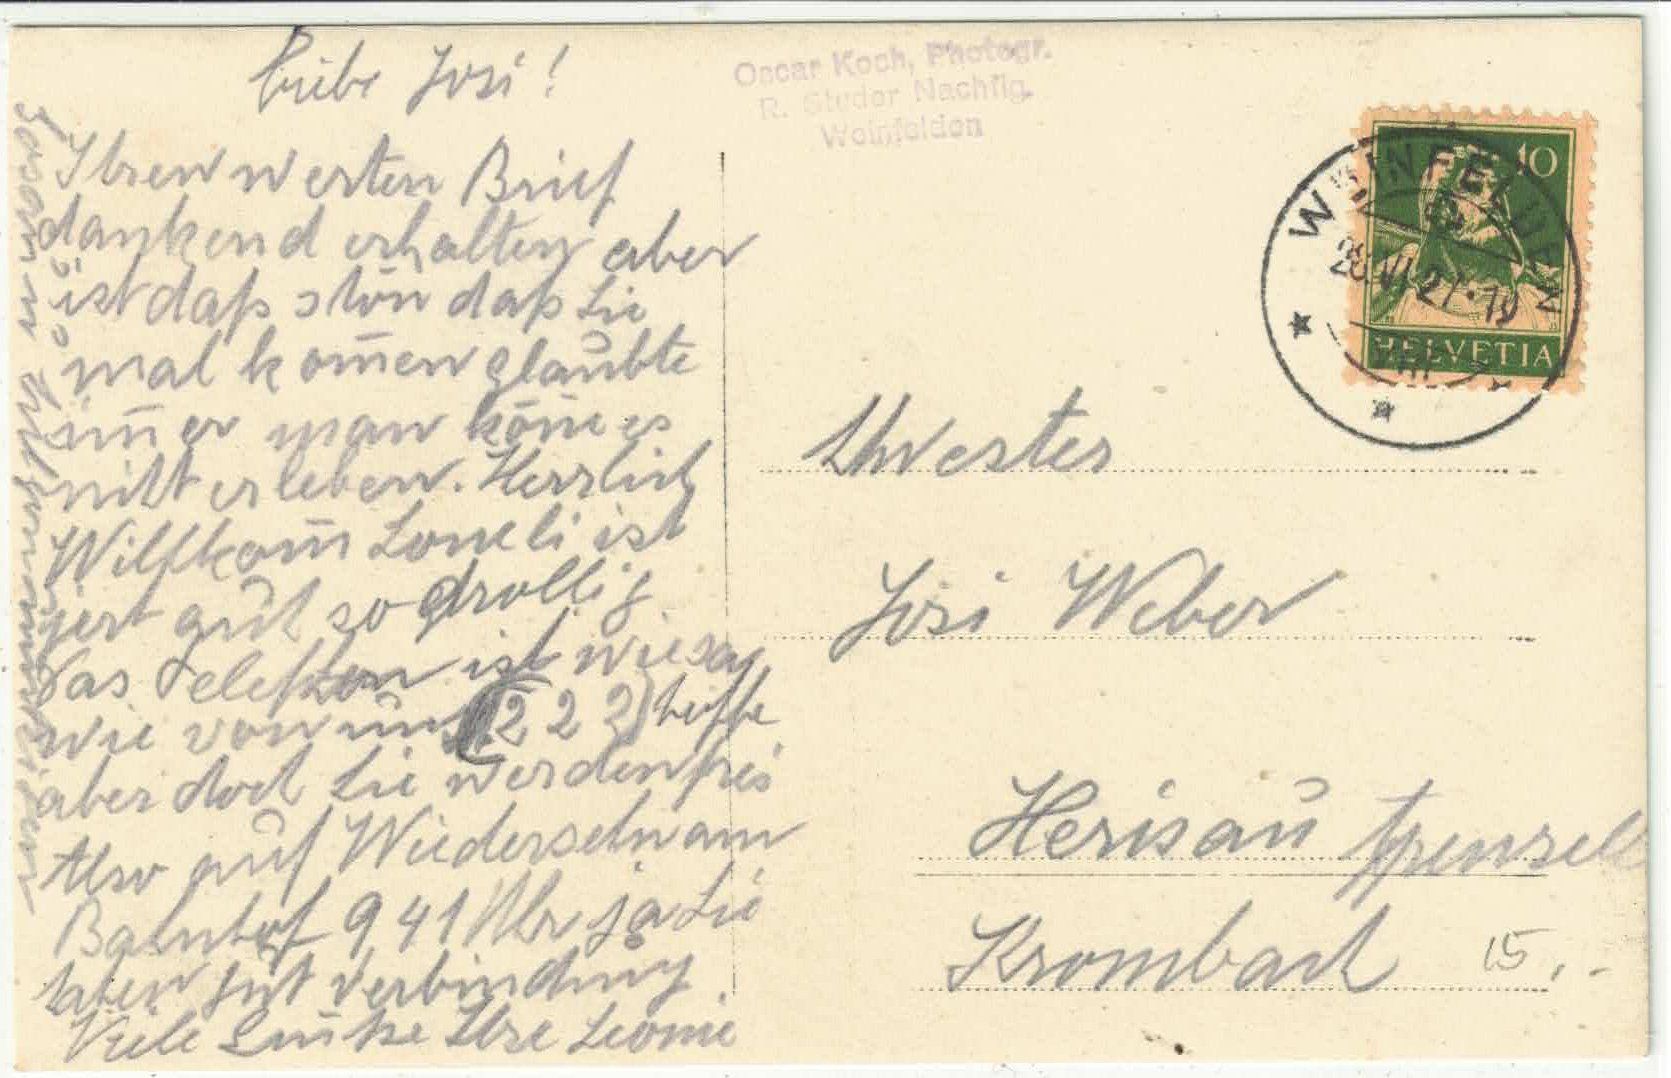 Liebe Josi!
Ihren werten Brief
dankend erhalten aber
ist daß schön daß Sie
mal kom̄en glaubte
im̄er man kön̄e es
nicht erleben. Herzlich
Wilkom̄ Loneli ist
jezt gut so drollig
das Telefon ist wie
wie von (222) hoffe
aber doch Sie werden frei
Also auf Wiedersehn am
Bahnhof 9 41 Uhr ja Sie
haben gut Verbindung
Viele Ihre Leonie
Oscar Koch, Photogr.
R. Studer Nachflg.
Weinfelden
10
HELVETIA
WEINFELDEN
VI.21.19
Schwester
Josi Weber
Herisau Appenzell
Krombach
15.-